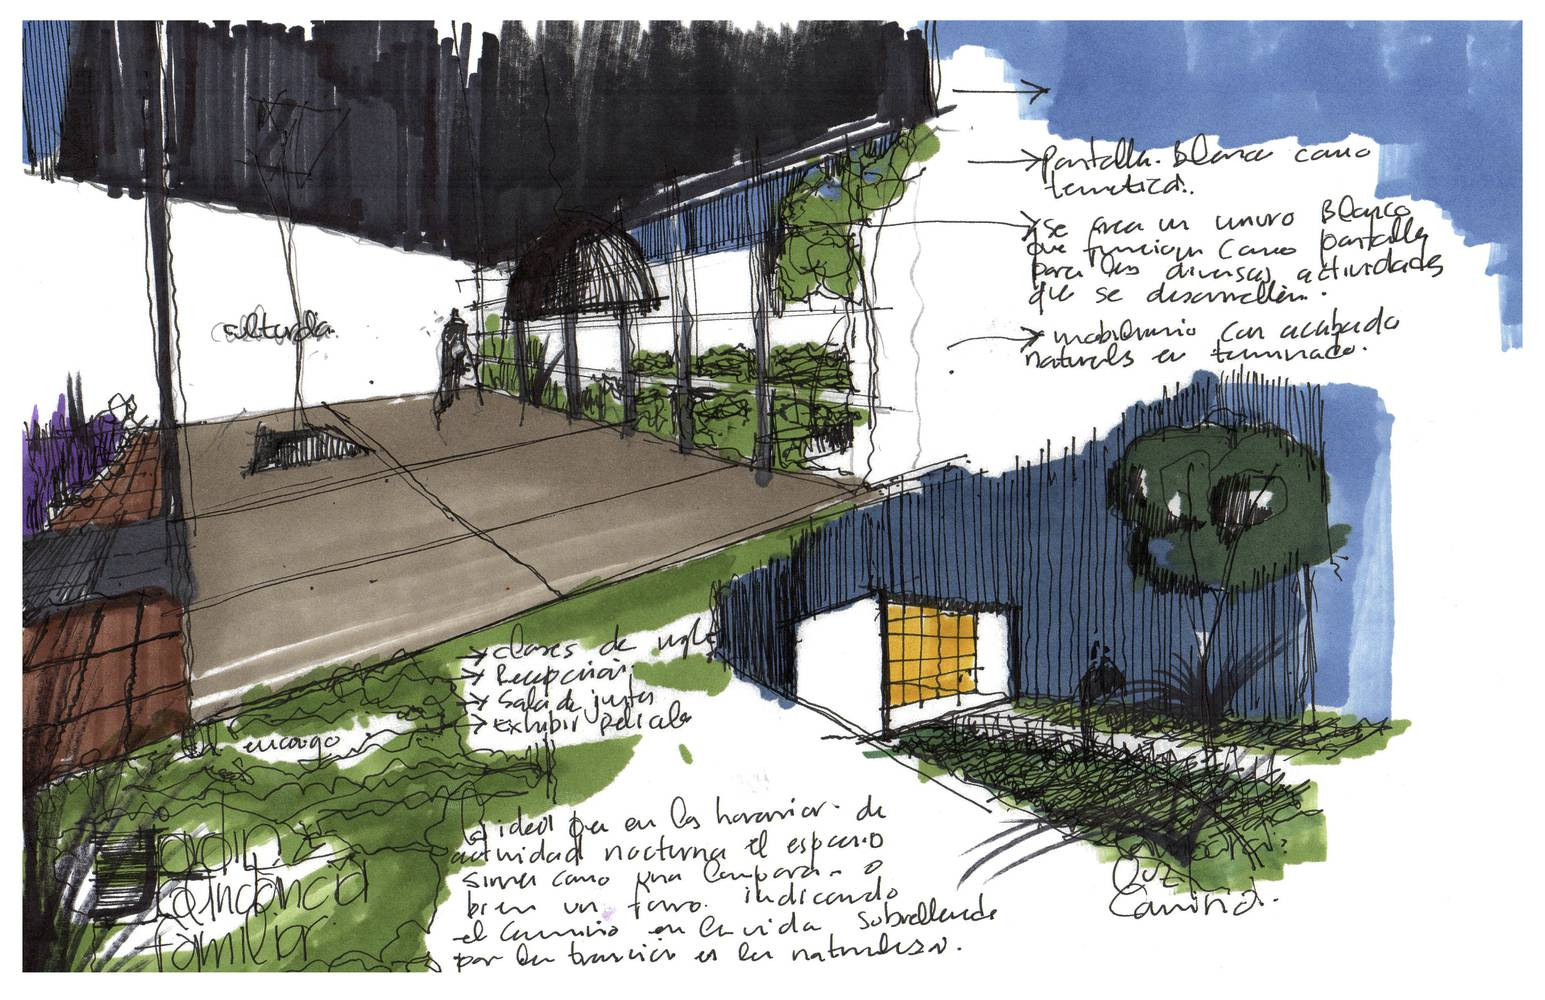 pantalla Blanca como
temática.
se crea un muro Blanco
que funcion como pantalla
para las diversas actividades
que se desarrollen.
mobiliario con acabado
naturales en terminado.
clases de
Recepción.
Sala de juntas
Exhibir pelicula
encargo
La idea que en los horarios de
actividad nocturna el espacio
sirva como una lampara o
bien un farro indicando
el camino en la vida sobrellevada
por la transición es la naturaleza.
Jardin
familia
Luz
Camina.